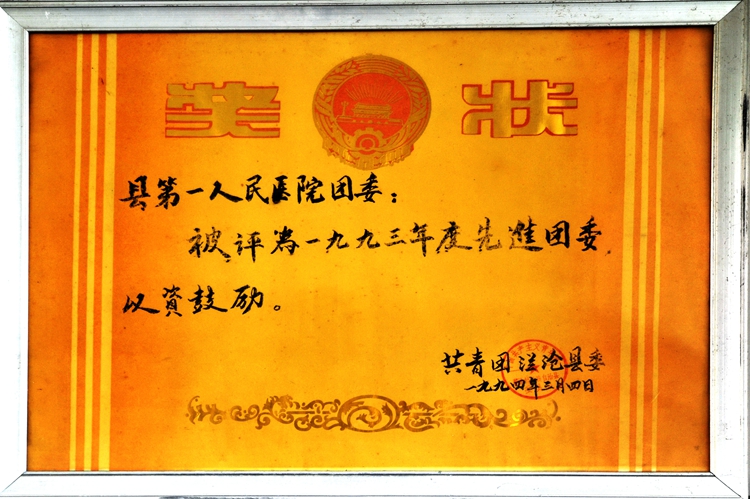 奖状
县第一人民医院团委：
被评为一九九三年度先進团委
以資鼓励。
共青团澜沧县委
一九九四年三月四日